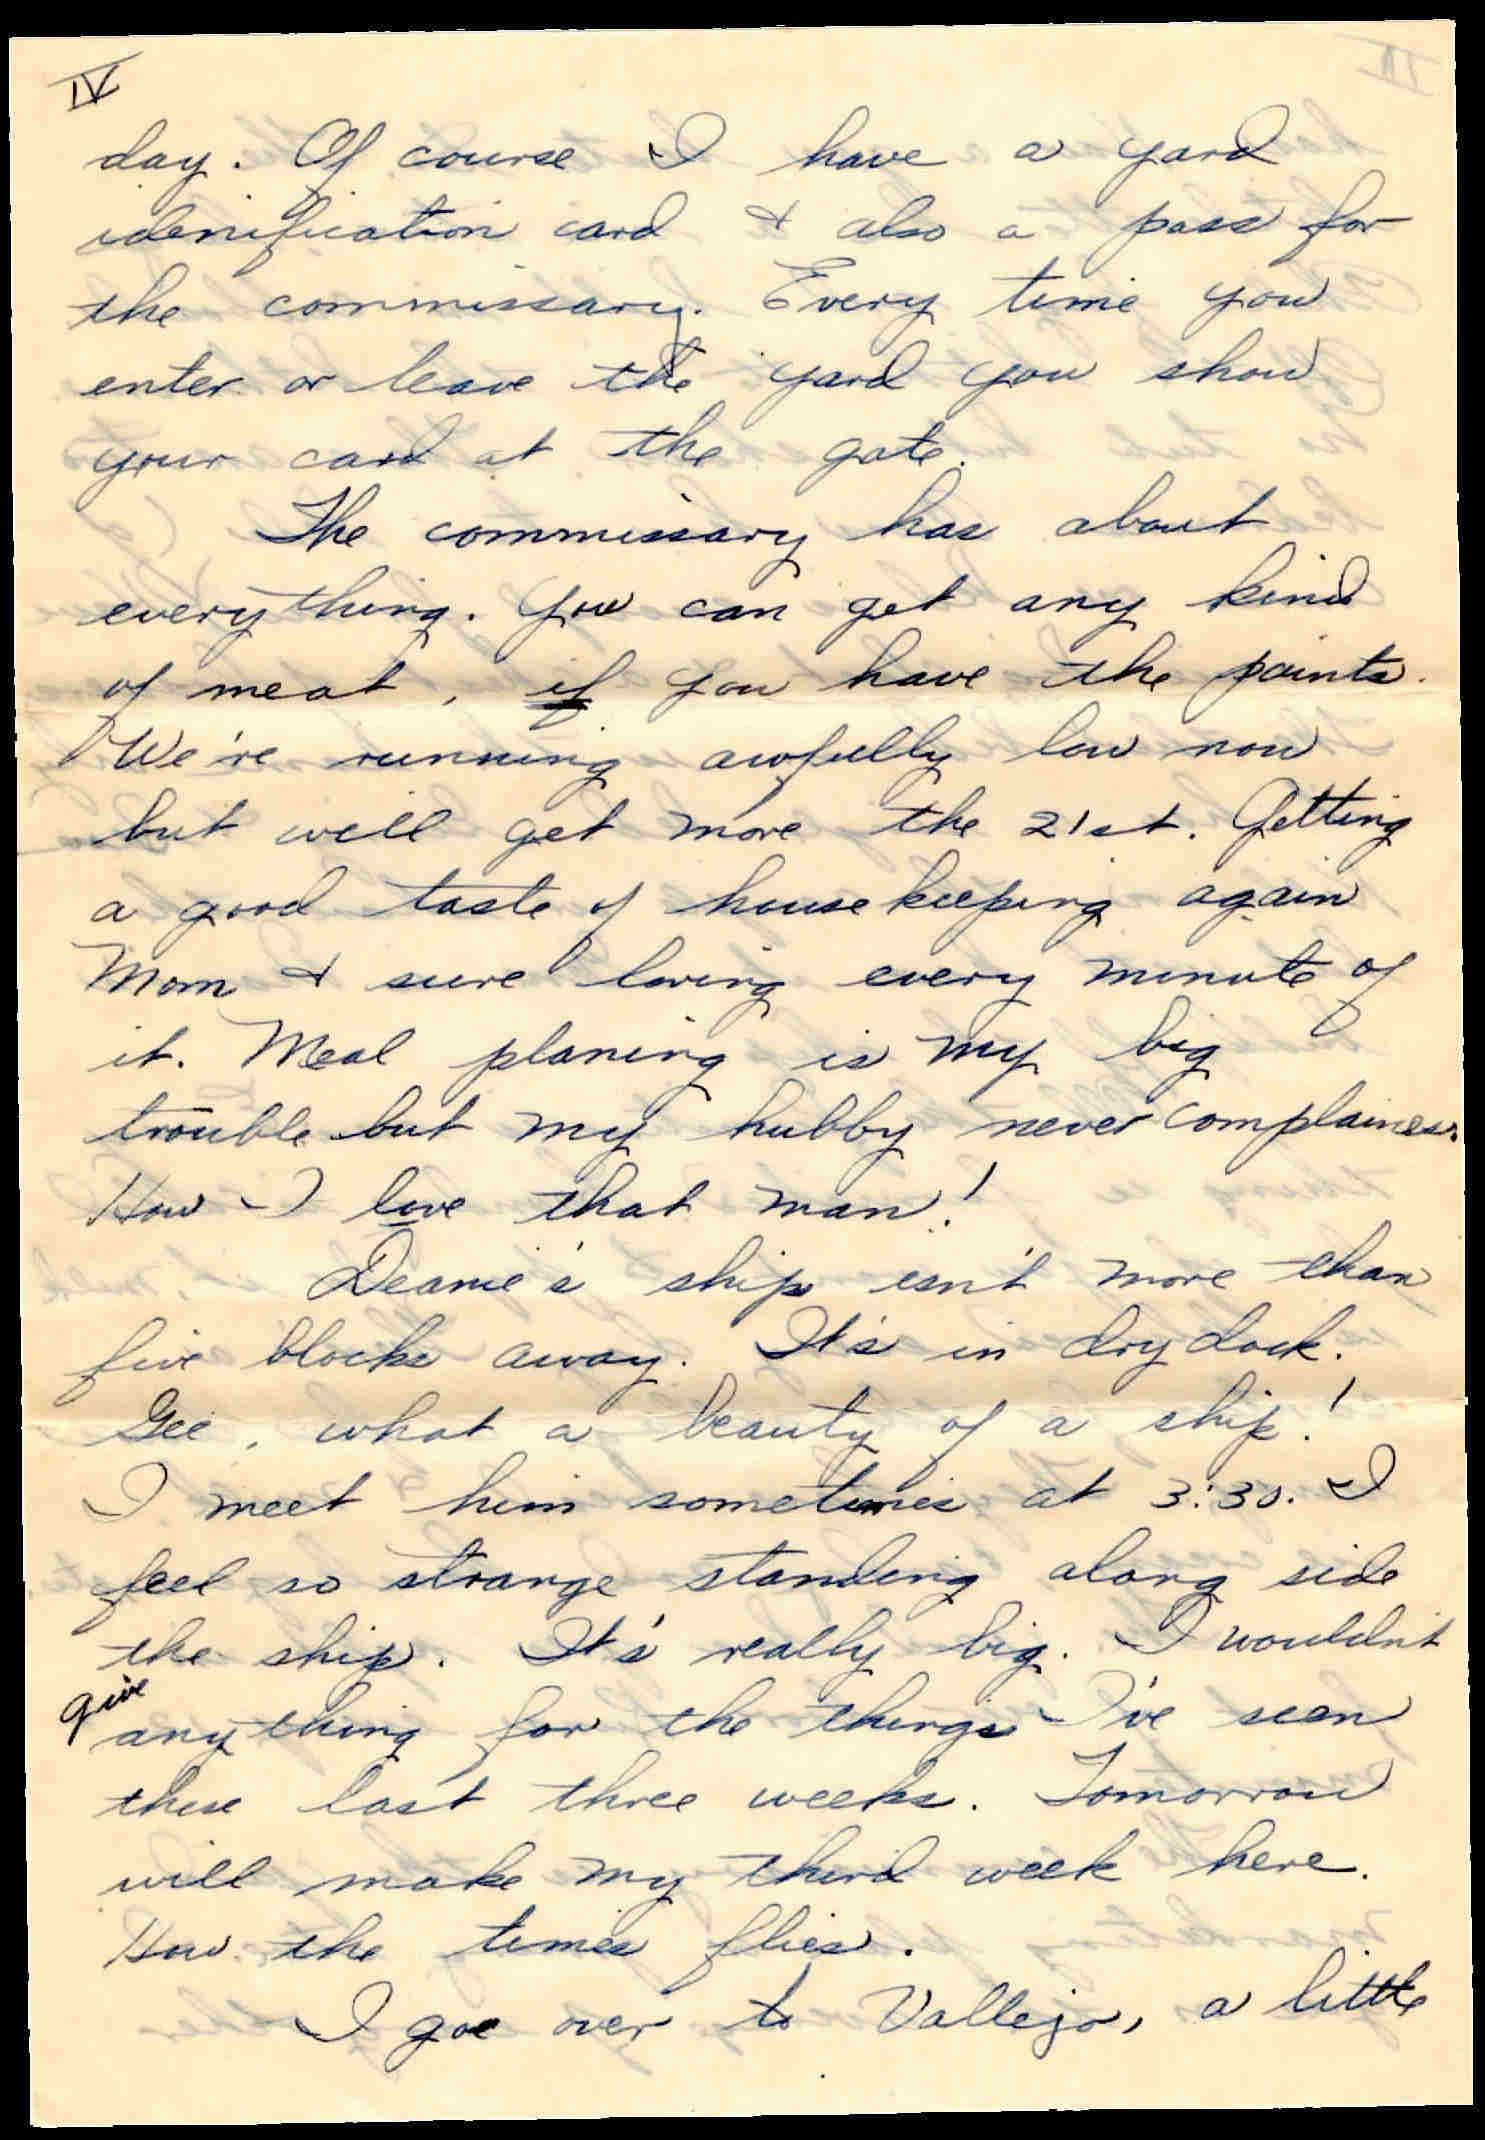 IV
day. Of course I have a yard
idenification card & also a pass for
the commissary. Every time you
enter or leave the yard you show
your card at the gate.
The commissary has about
everything. You can get any kind
of meat, if you have the points.
We're running awfully low now
but will get more the 21st. Getting
a good taste of housekeeping again
Mom & sure loving every minute of
it. Meal planing is my big
trouble but my hubby never complaines.
How I love that man!
Deanie's ship isn't more than
five blocks away. It's in dry dock.
Gee, what a beauty of a ship!
I meet him sometimes at 3:30. I
feel so strange standing along side
the ship. It's really big. I wouldn't
give
anything for the things I've seen
these last three weeks. Tomorrow
will make my third week here.
How the times flies.
I goe over to Vallejo, a little